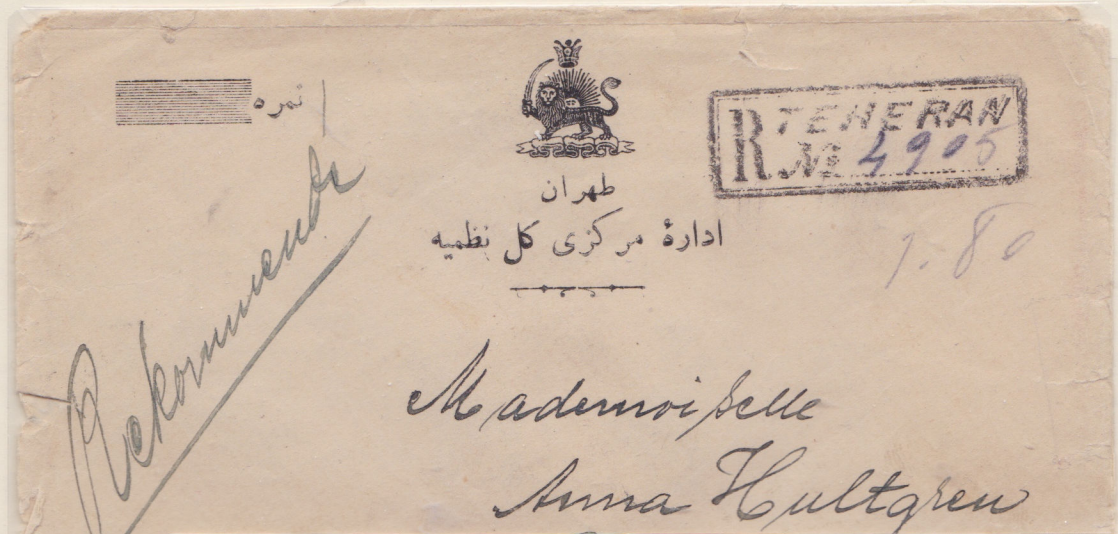 نمره
R TEHERAN
No 4905
طهران
ادارهٔ مرکزی کل نظمیه
1.80
Rekommendé
Mademoiselle
Anna Hultgren